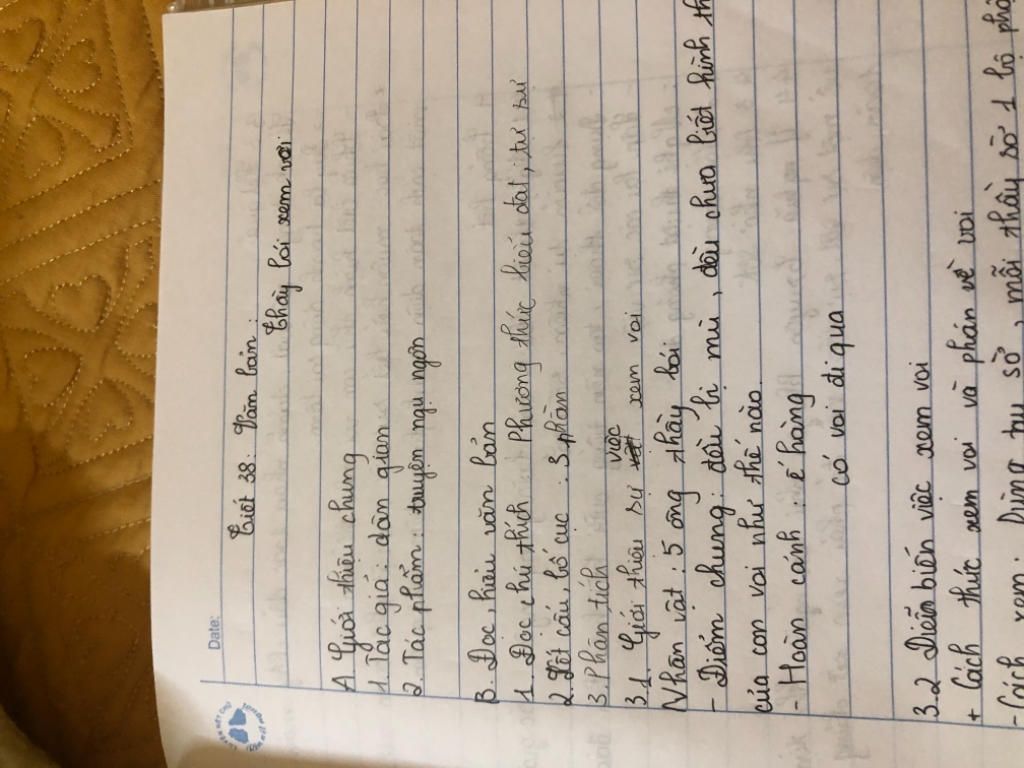 Date:
Tiết 38: Văn bản:
Thầy bói xem voi
A. Giới thiệu chung
1. Tác giả: dân gian
2. Tác phẩm: truyện ngụ ngôn
B. Đọc, hiểu văn bản
1. Đọc chú thích Phương thức biểu đạt: tự sự
2. Kết cấu, bố cục: 3 phần
3. Phân tích
3.1. Giới thiệu sự việc xem voi
Nhân vật: 5 ông thầy bói
- Điểm chung: đều bị mù, đều chưa biết hình th
của con voi như thế nào.
- Hoàn cảnh: ế hàng
có voi đi qua
3.2 Diễn biến việc xem voi
+ Cách thức xem voi và phán về voi
- Cách xem: Dùng tay sờ, mỗi thầy sờ 1 bộ phậ